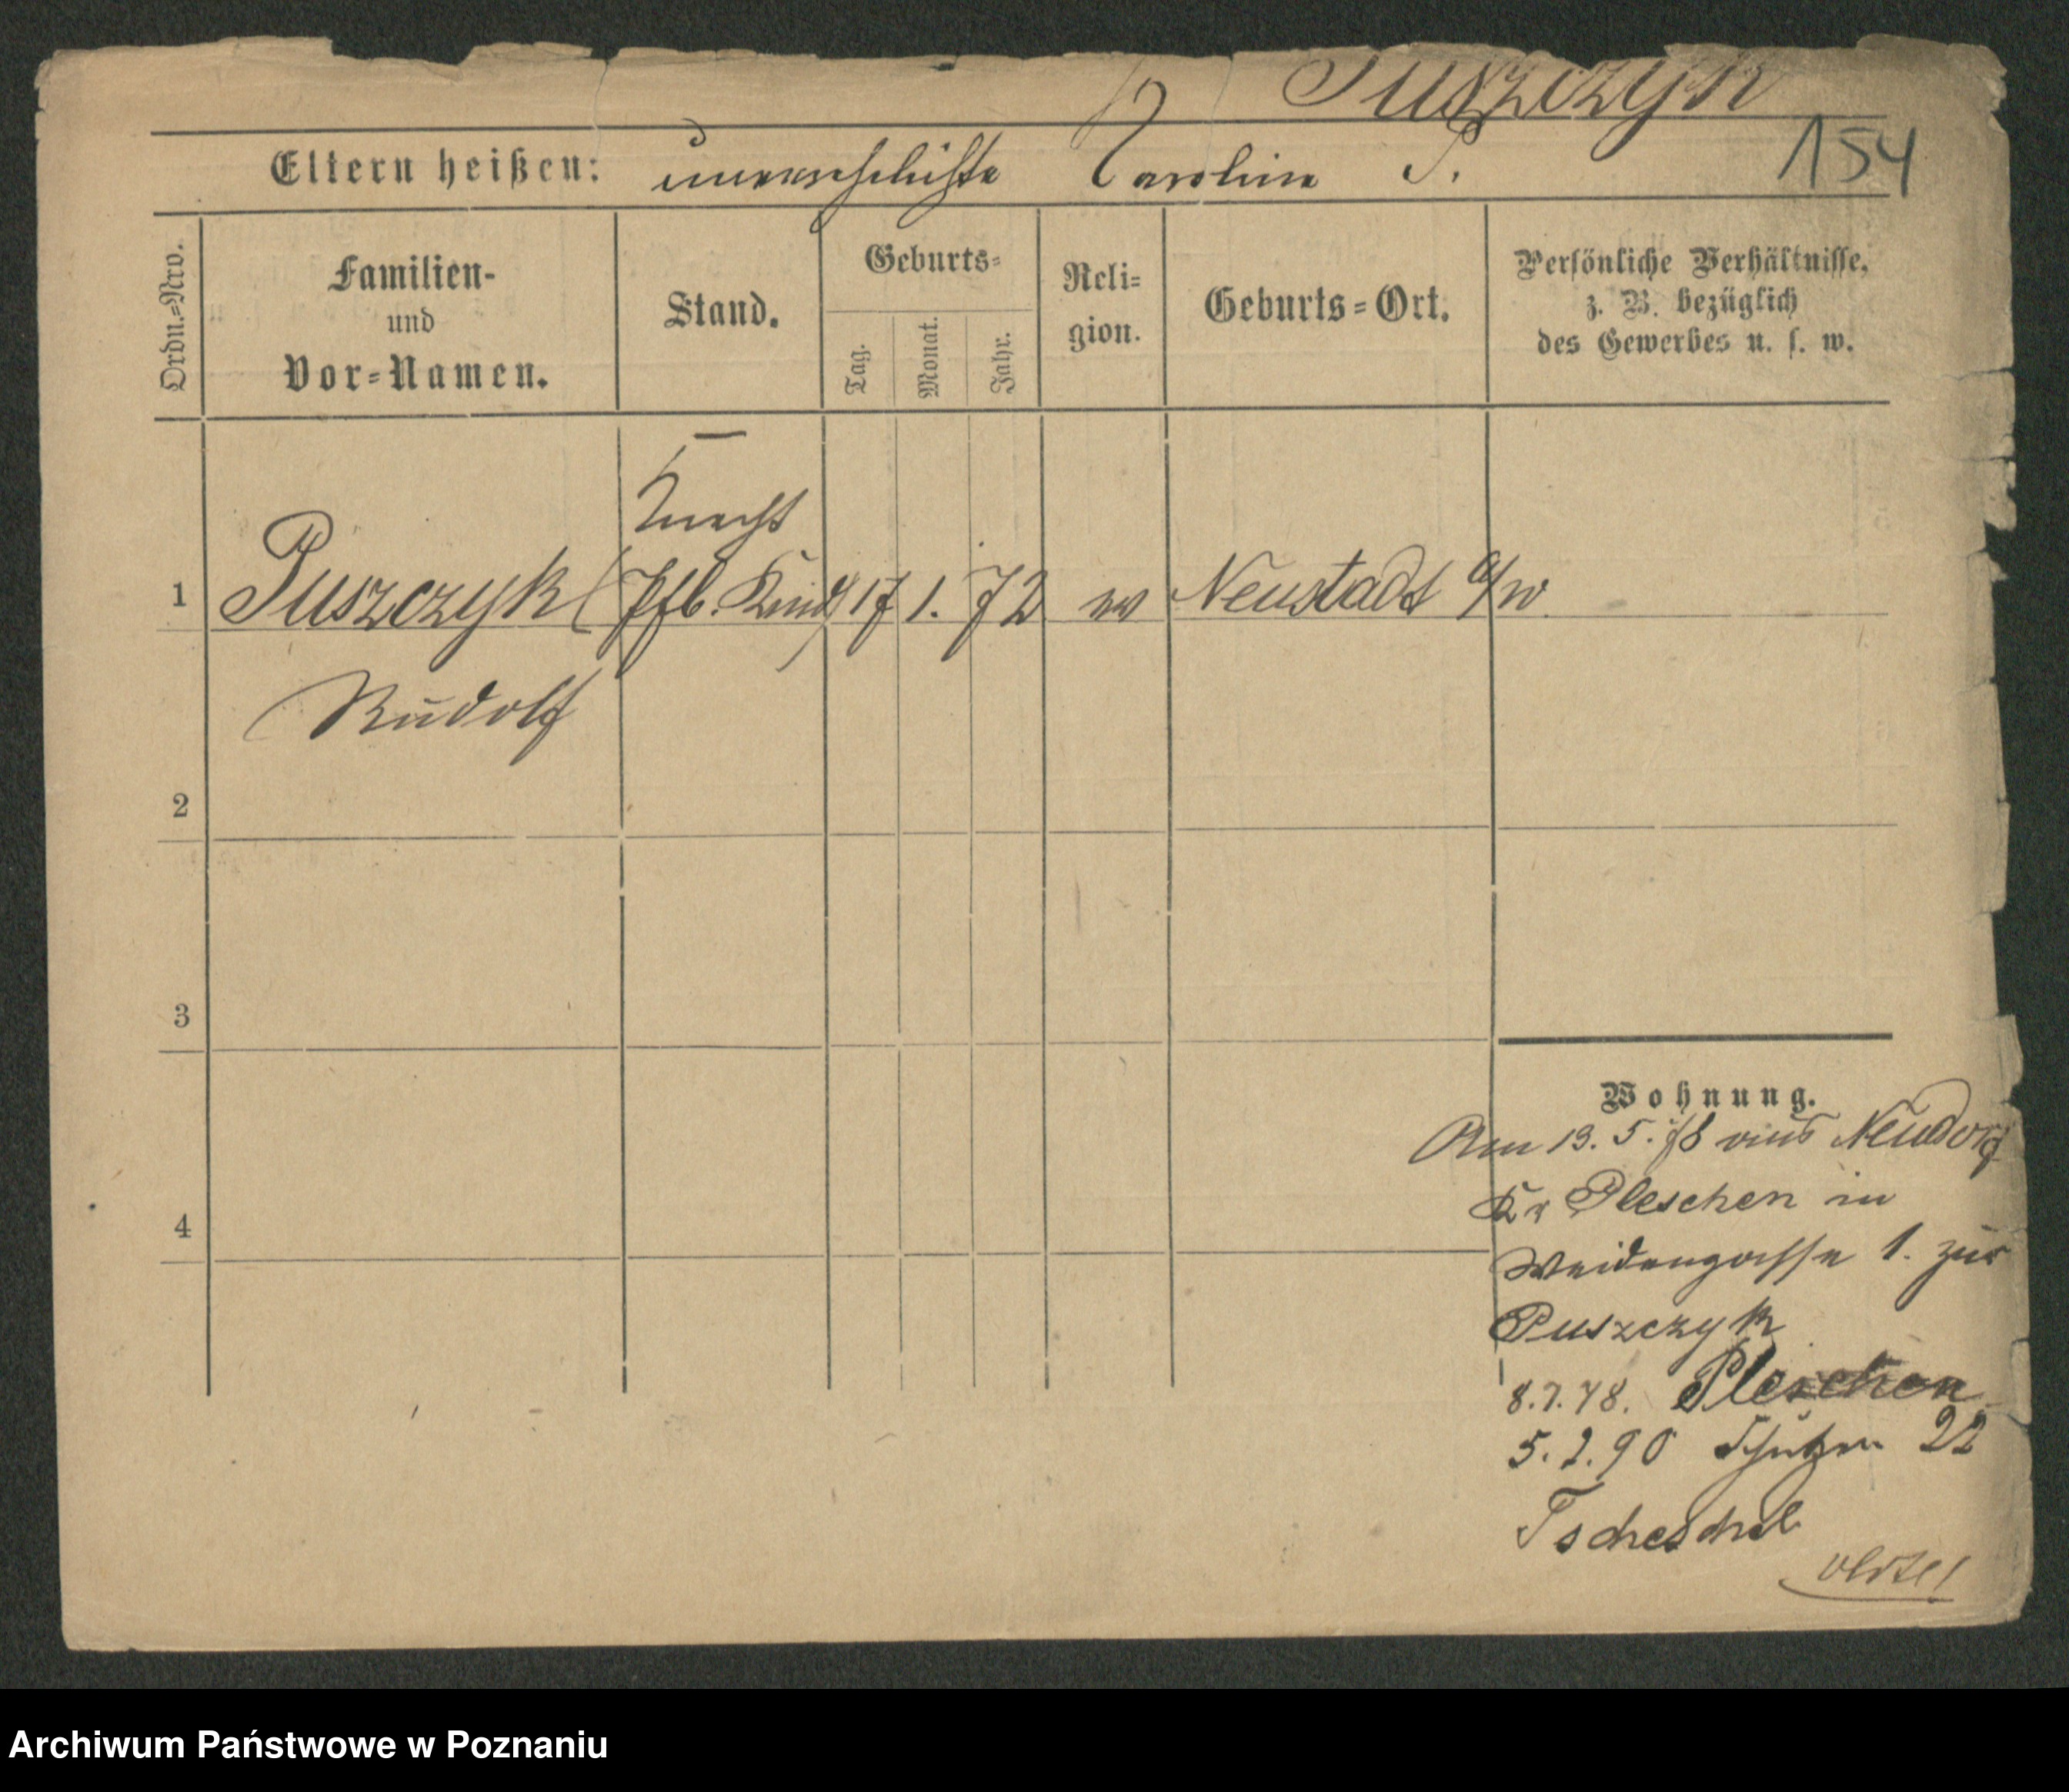 Puszczyk
154
Eltern heißen: unverehelichte Caroline P.
Ordn.=Nro.
Familien-
und
Vor=Namen.
Stand.
Geburts=
Tag.
Monat.
Jahr.
Reli=
gion.
Geburts=Ort.
Persönliche Verhältnisse,
z. B. bezüglich
des Gewerbes u. s. w.
Knecht
1 Puszczyk (Pfl. Kind) 17 1. 72 ev Neustadt a/W.
Rudolf
2
3
4
Wohnung.
Am 13. 5. 78 aus Neudorf
Kr Pleschen in
Weidengasse 1. zur
Puszczyk
8.7.78. Pleschen
5.2.90 Schützen 22
Tscheschel